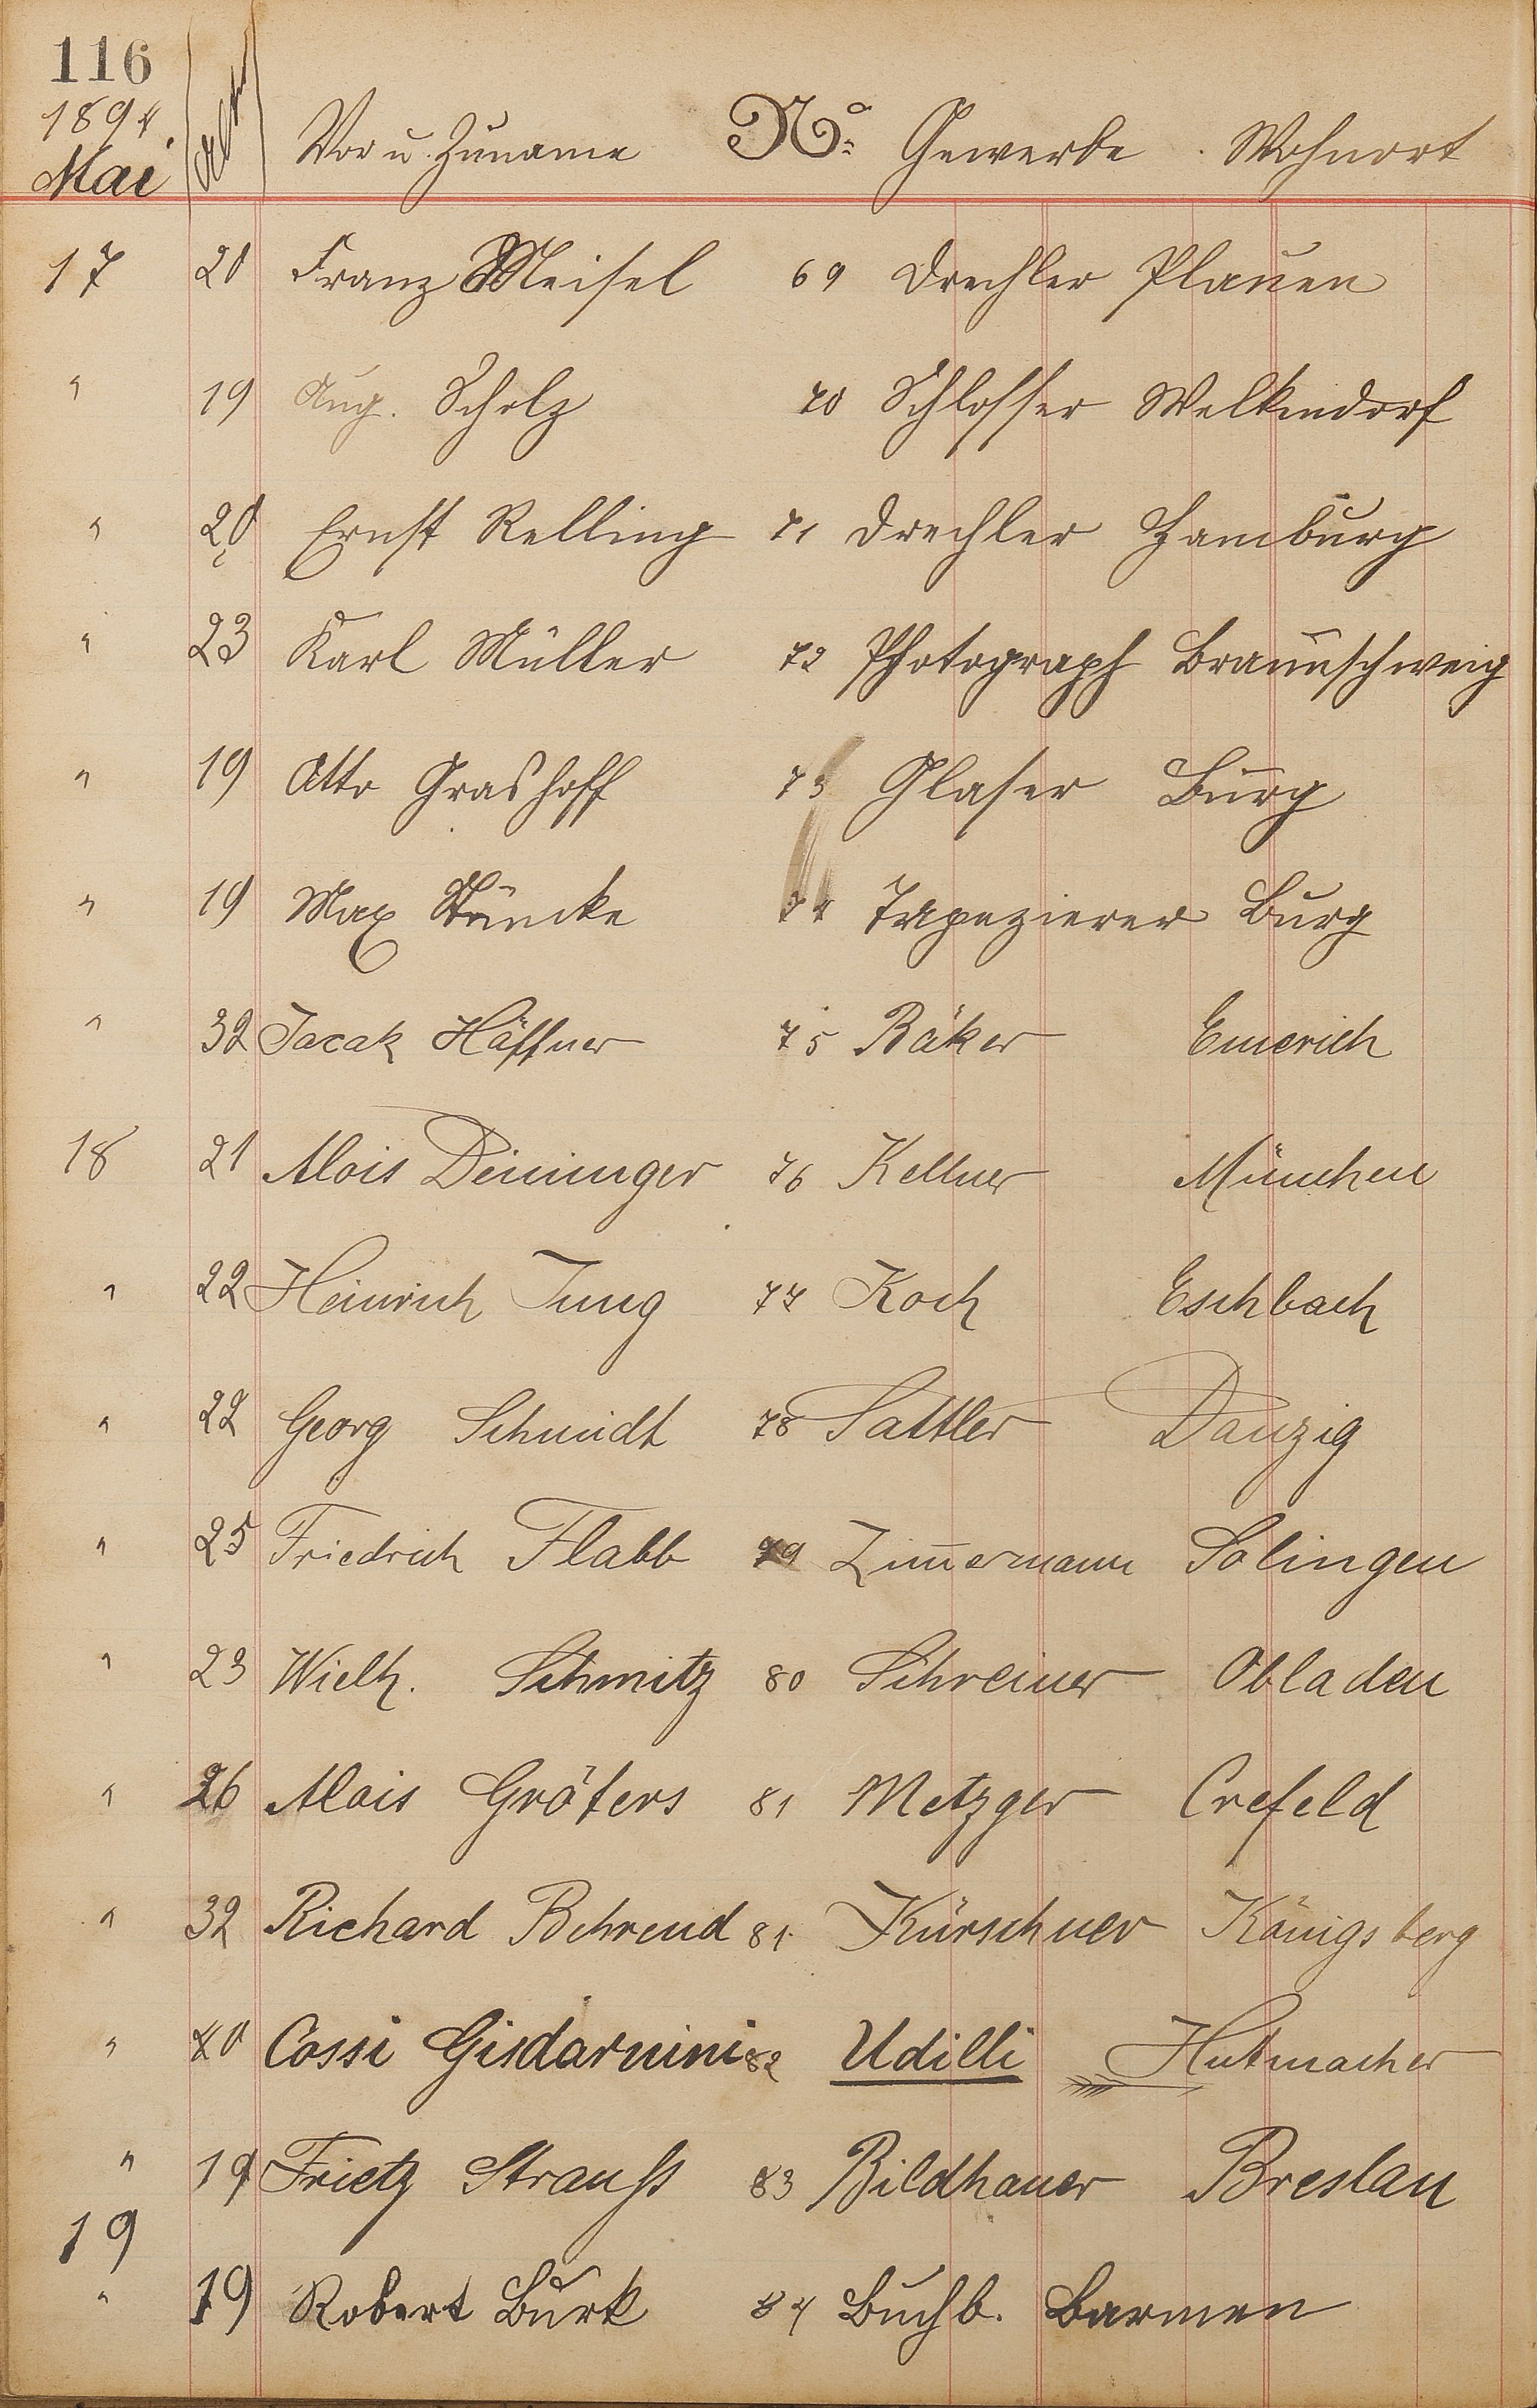 116
1894
Mai Alter Vor u. Zuname No. Gewerbe. Wohnort
17 20 Franz Meisel 69 Drechler Plauen
" 19 Aug. Scholz 70 Schlosser Welkendorf
" 20 Ernst Relling 71 Drechler Hamburg
" 23 Karl Müller 72 Photograph Braunschweig
" 19 Otto Grashoff 73 Glaser Burg
" 19 Max 74 Tapezierer Burg
" 32 Jacak Häffner 75 Bäker Emerich
18 21 Alois Deininger 76 Kellner München
" 22 Heinrich Jung 77 Koch Eschbach
" 22 Georg Schmidt 78 Sattler Danzig
" 25 Friedrich Flabb 79 Zim̅ermann Solingen
" 23 Wielh. Schmitz 80 Schreiner Obladen
" 26 Alois Gröters 81 Metzger Crefeld
" 32 Richard Behrend 81. Kürschner Königsberg
" 20 Cossi Gisdarnini 82 Udilli Hutmacher
" 19 Frietz Strauß 83 Bildhauer Breslau
19
" 19 Robert Burk 84 Buchb. Barmen